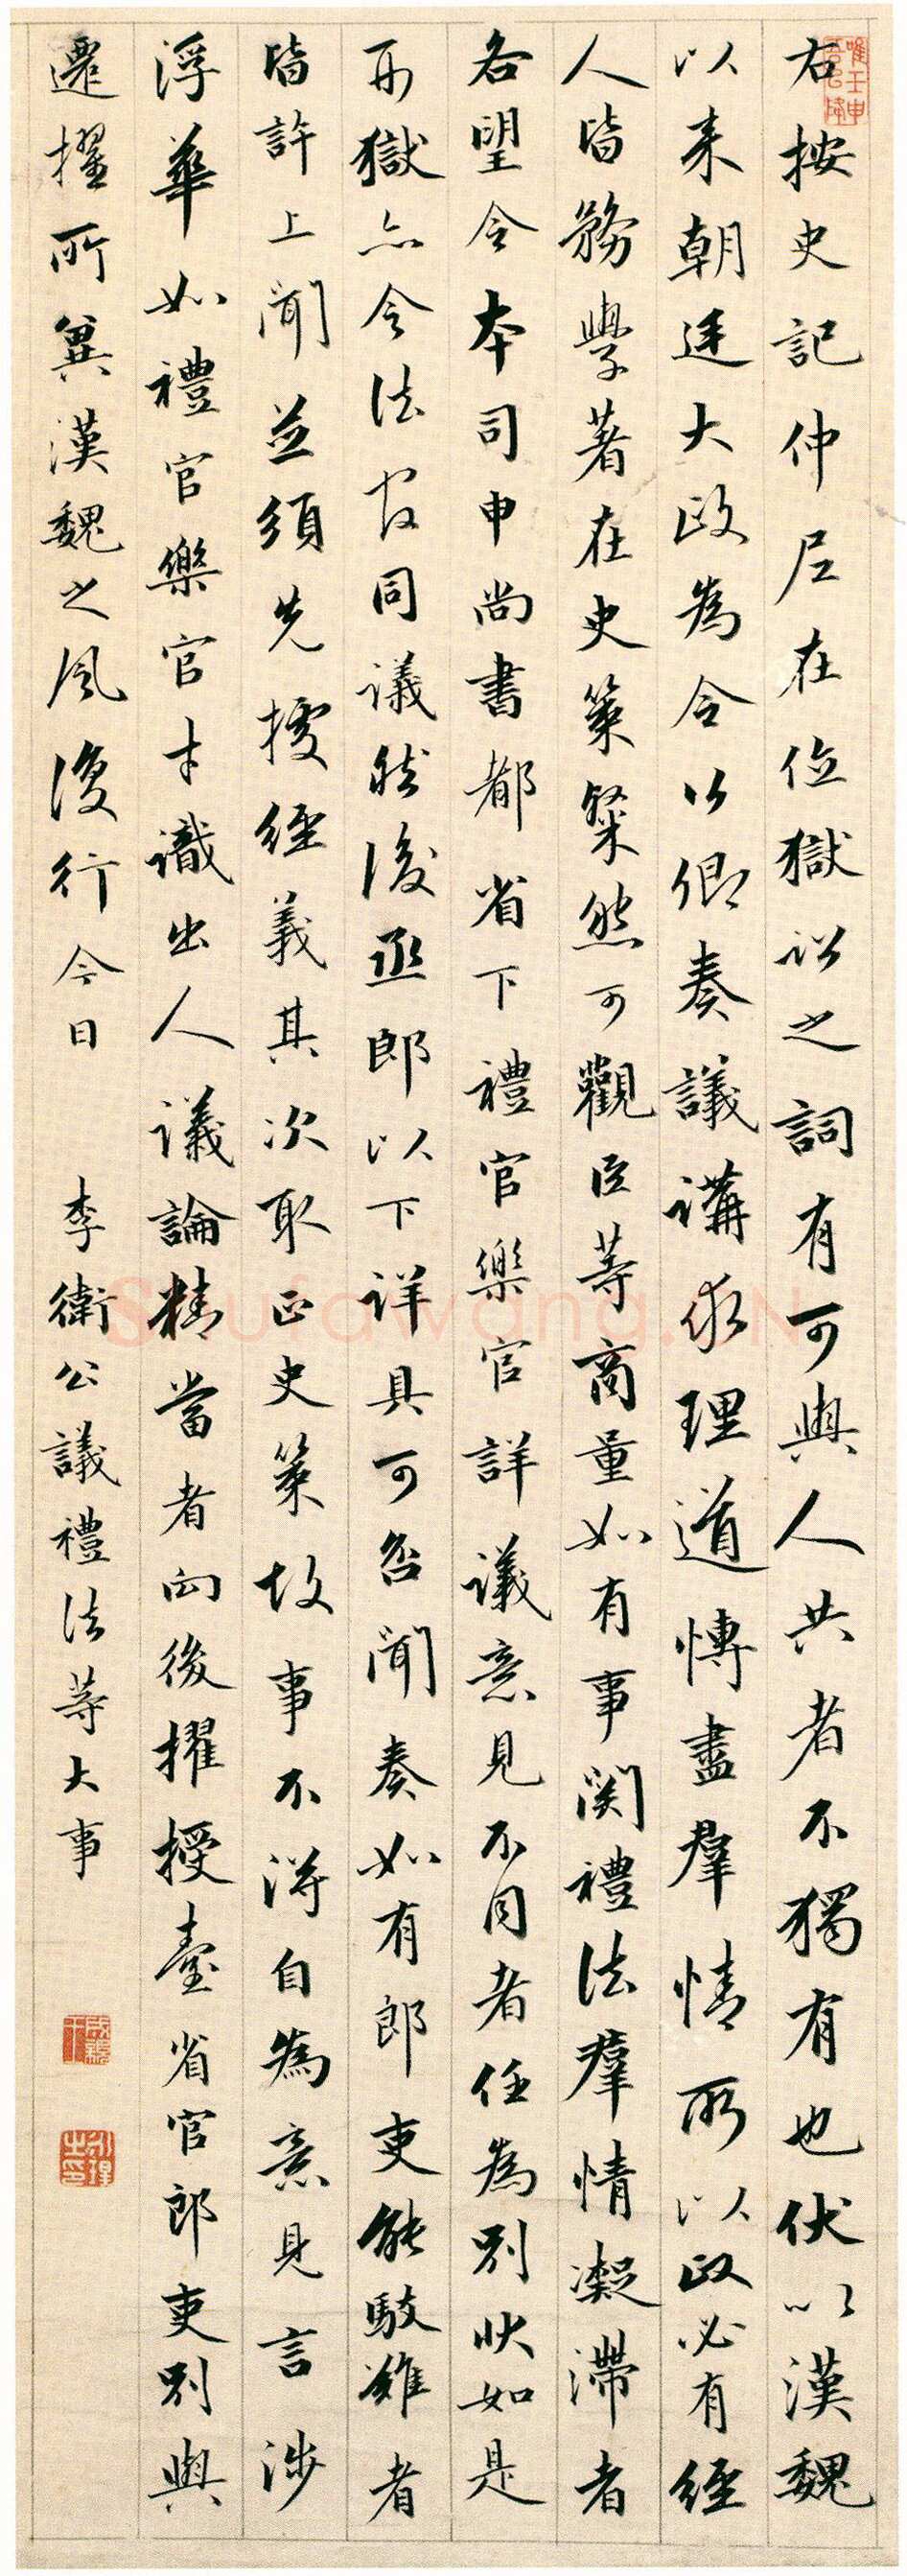 右按史記仲尼在位獄訟之詞有可與人共者不獨有也伏以漢魏
以来朝廷大政為令公卿奏議講求理道博盡群情所以政必有經
人皆務學著在史策粲然可觀臣等商量如有事関禮法群情凝滯者
各望令本司申尚書都省下禮官樂官詳議意見不同者任為別狀如是
刑獄亦令法官同議然後丞郎以下詳具可否聞奏如有郎吏能駮難者
皆許上聞並須先據經義其次取正史策故事不得自為意見言涉
浮華如禮官樂官才識出人議論精當者向後擢授臺省官郎吏別與
遷擢所冀漢魏之風復行今日 李衛公議禮法等大事
成親王
Shufawang.CN